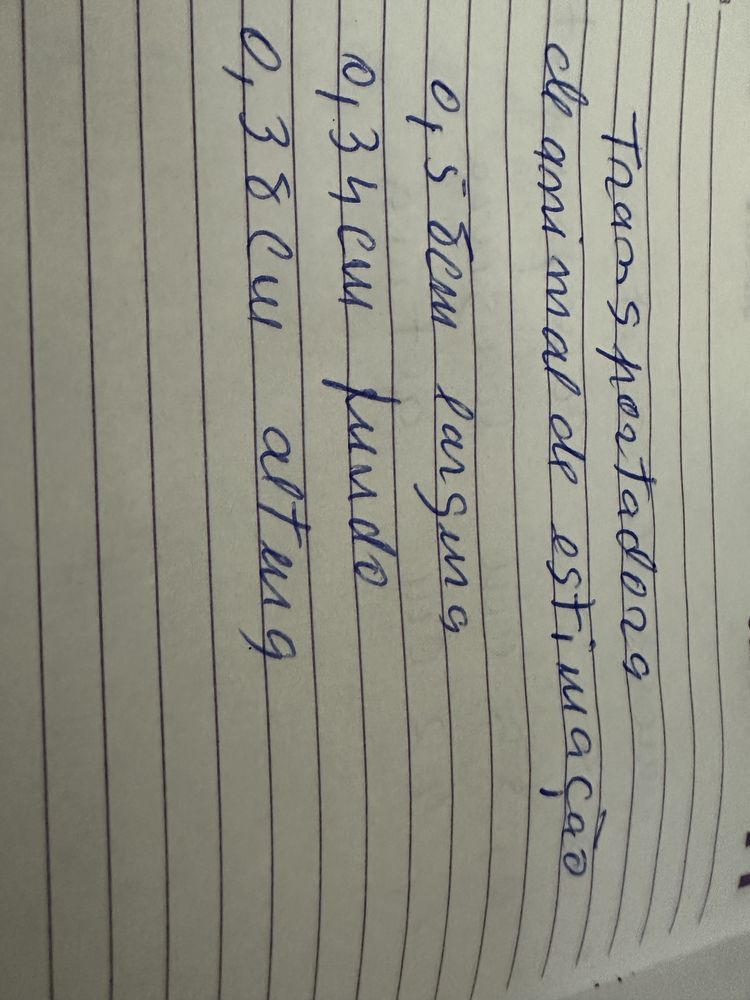 Transportadora
de animal de estimação
0,58cm largura
0,34cm fundo
0,38cm altura